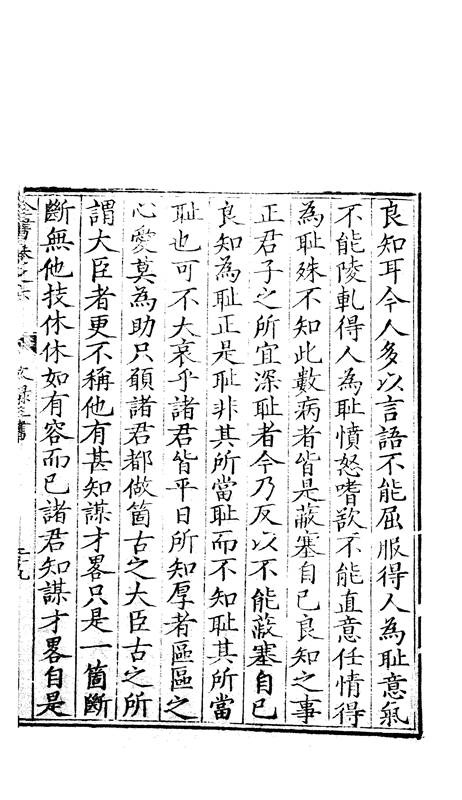 良知耳今人多以言語不能屈服得人為耻意氣
不能陵軋得人為耻憤怒嗜欲不能直意任情得
為耻殊不知此數病者皆是蔽塞自己良知之事
正君子之所宜深耻者今乃反以不能蔽塞自己
良知為耻正是耻非其所當耻而不知耻其所當
耻也可不大哀乎諸君皆平日所知厚者區區之
心愛莫為助只願諸君都做箇古之大臣古之所
謂大臣者更不稱他有甚知謀才畧只是一箇斷
斷無他技休休如有容而已諸君知謀才畧自是
全書卷之六 文録三書 二十九